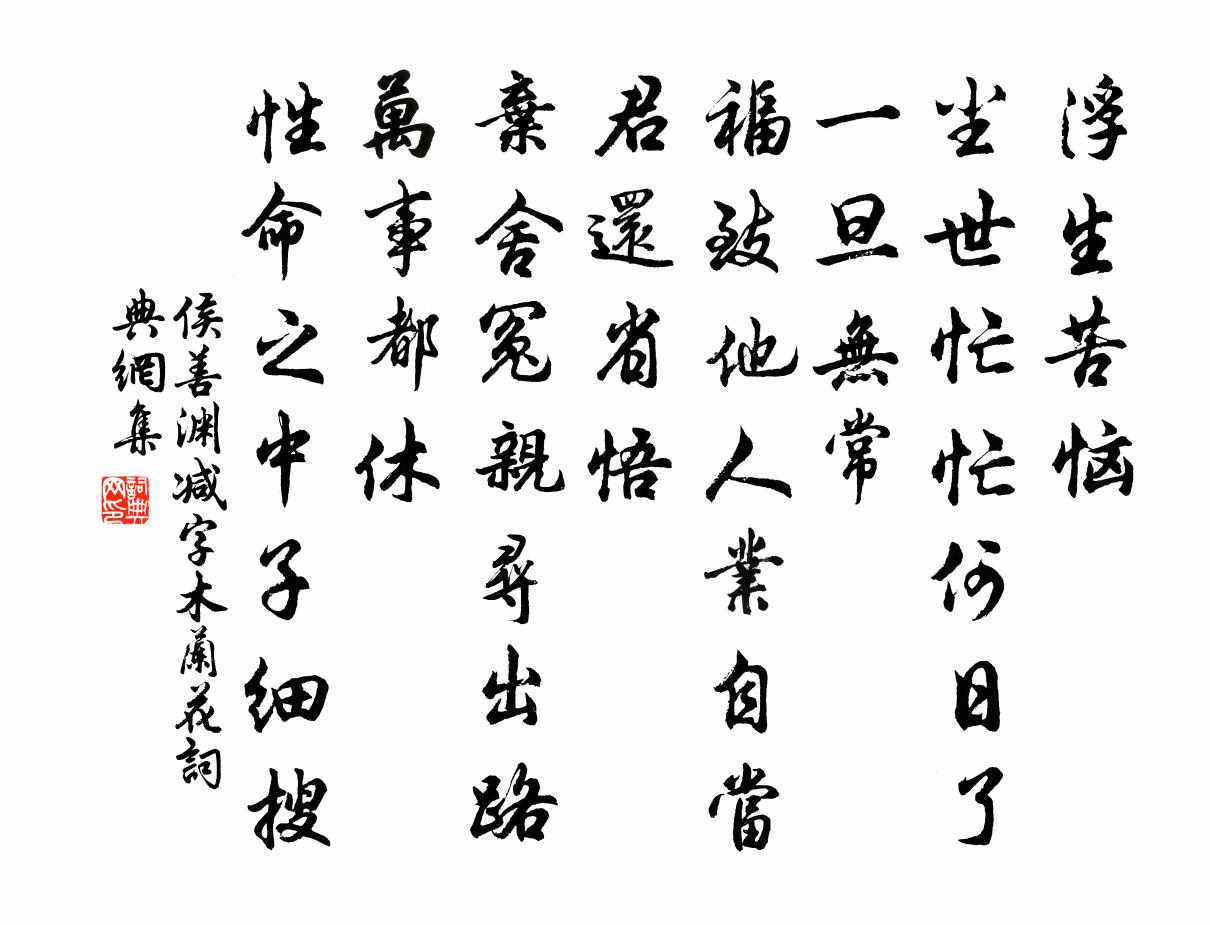 浮生苦惱
尘世忙忙何日了
一旦無常
福致他人業自當
君還省悟
棄舍冤親尋出路
萬事都休
性命之中子細搜
侯善渊减字木蘭花詞
典網集
詞典
网印